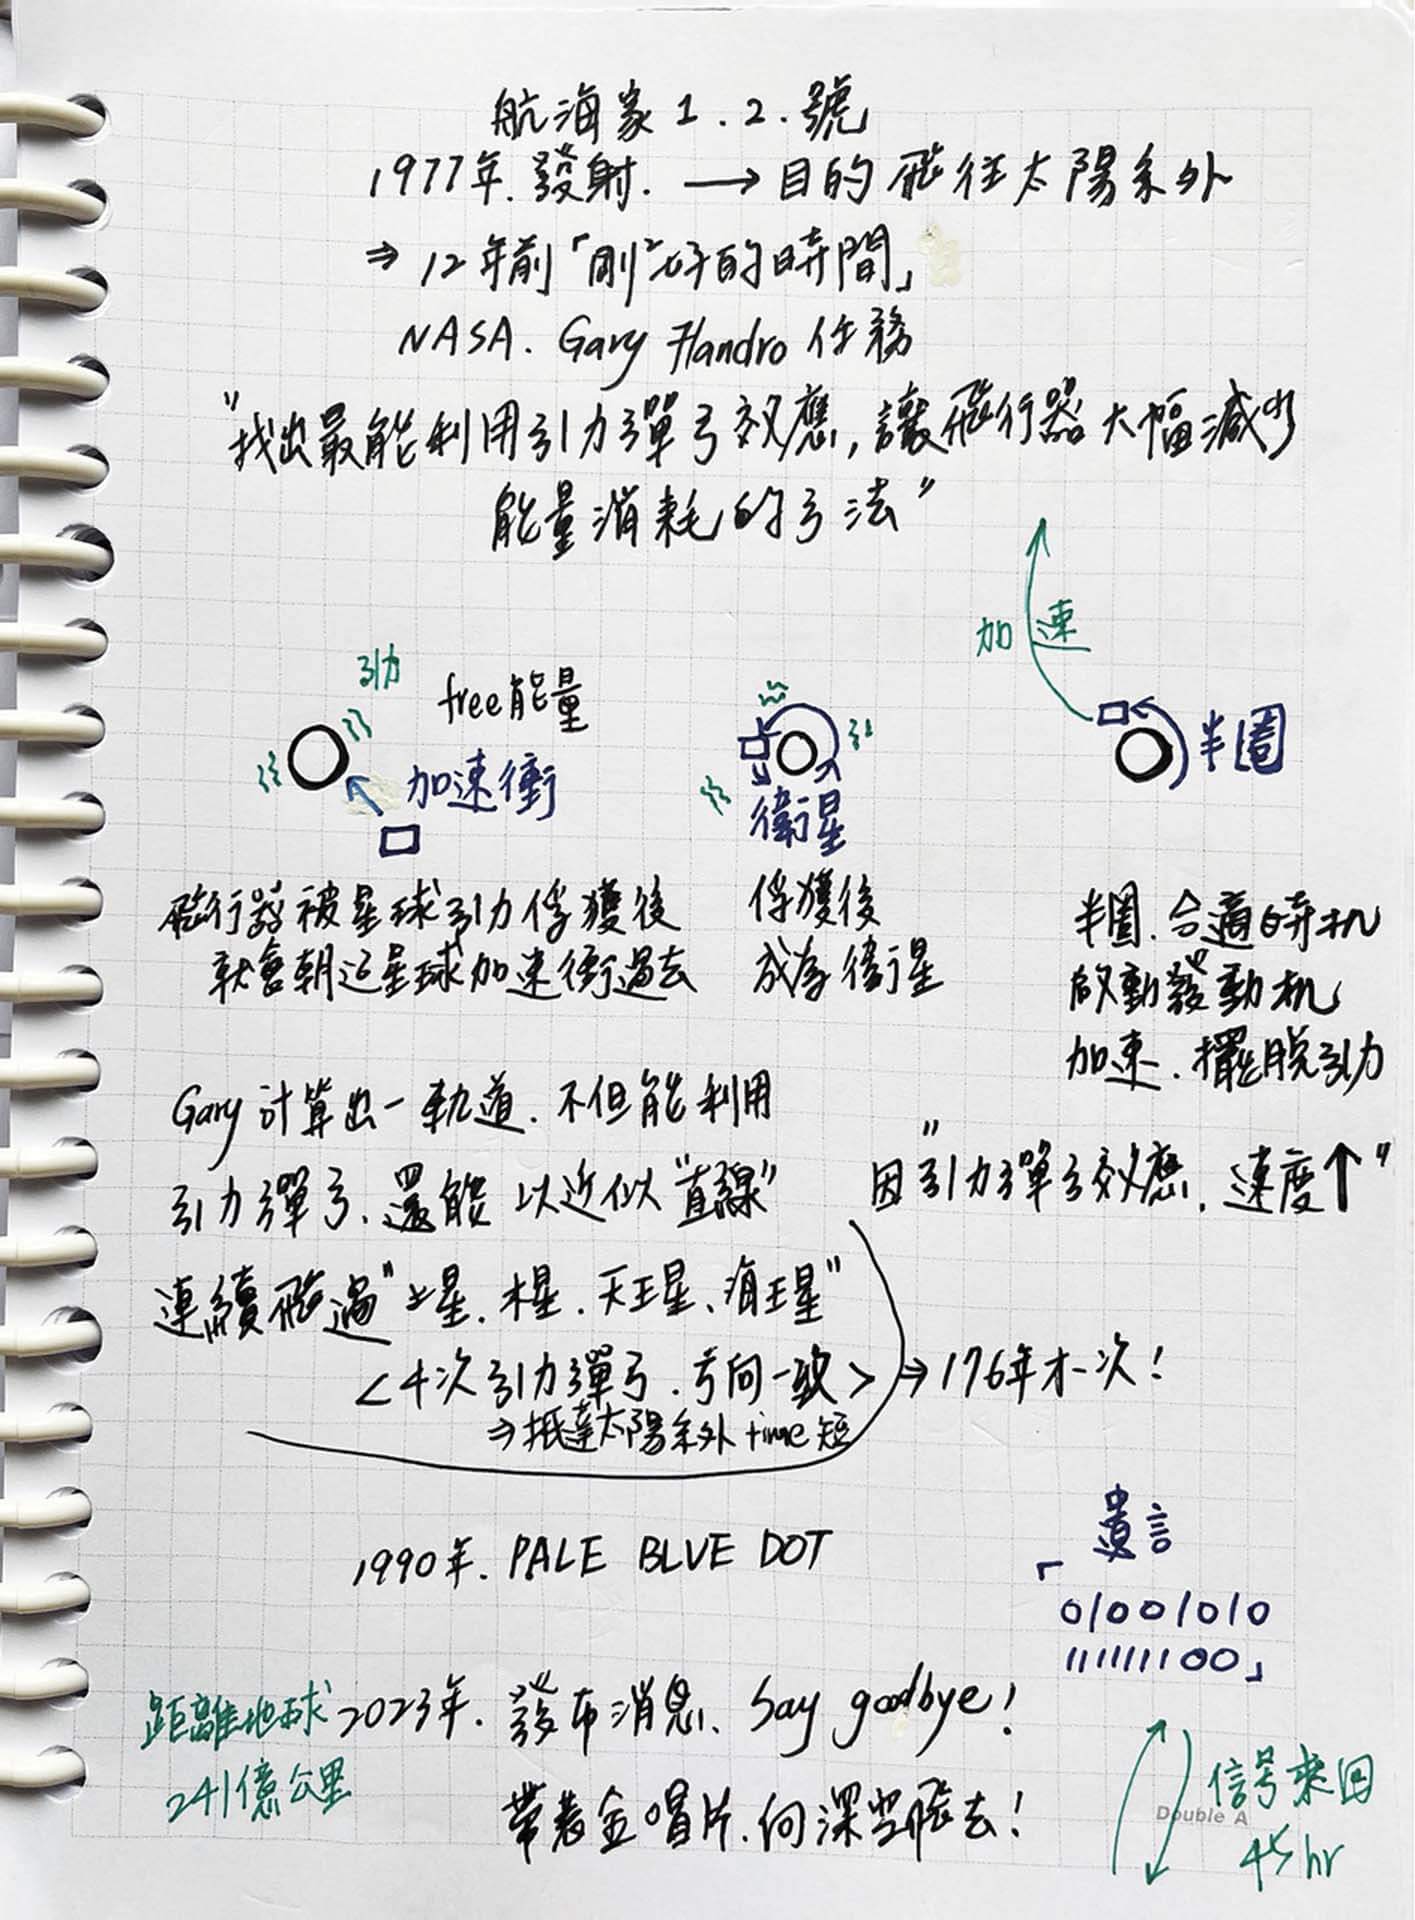 航海家1.2.號
1977年.發射. → 目的飛往太陽系外
⇒ 12年前「剛"好的時間」
NASA. Gary Flandro 任務
"找出最能利用引力彈弓效應,讓飛行器大幅減少
能量消耗的方法"
加速
引力
free能量
加速衝
衛星
半圈
飛行器被星球引力俘獲後
就會朝這星球加速衝過去
俘獲後
成為衛星
半圈.合適時机
啟動發動机
加速.擺脫引力
Gary 計算出一軌道.不但能利用
引力彈弓、還能以近似"直線"
連續飛過"土星、木星、天王星、海王星"
<4次引力彈弓.方向一致> → 176年才一次!
⇒抵達太陽系外 time 短
"因引力彈弓效應,速度↑"
1990年. PALE BLUE DOT
遺言
「01001010
1111111100」
距離地球
241億公里
2023年.發布消息、Say goodbye!
帶著金唱片.向深空飛去!
信号來回
45hr
Double A